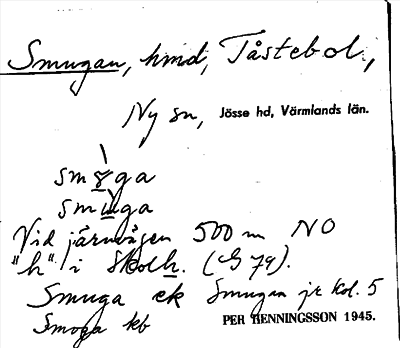 Smugan, hmd, Tåstebol.,
Ny sn, Jösse hd, Värmlands län.
smȣga
smuga
Vid järnvägen 500 m NO
"h" i Skolh. (G 79).
Smuga ek Smugan jr kol. 5
Smoga kb
PER HENNINGSSON 1945.